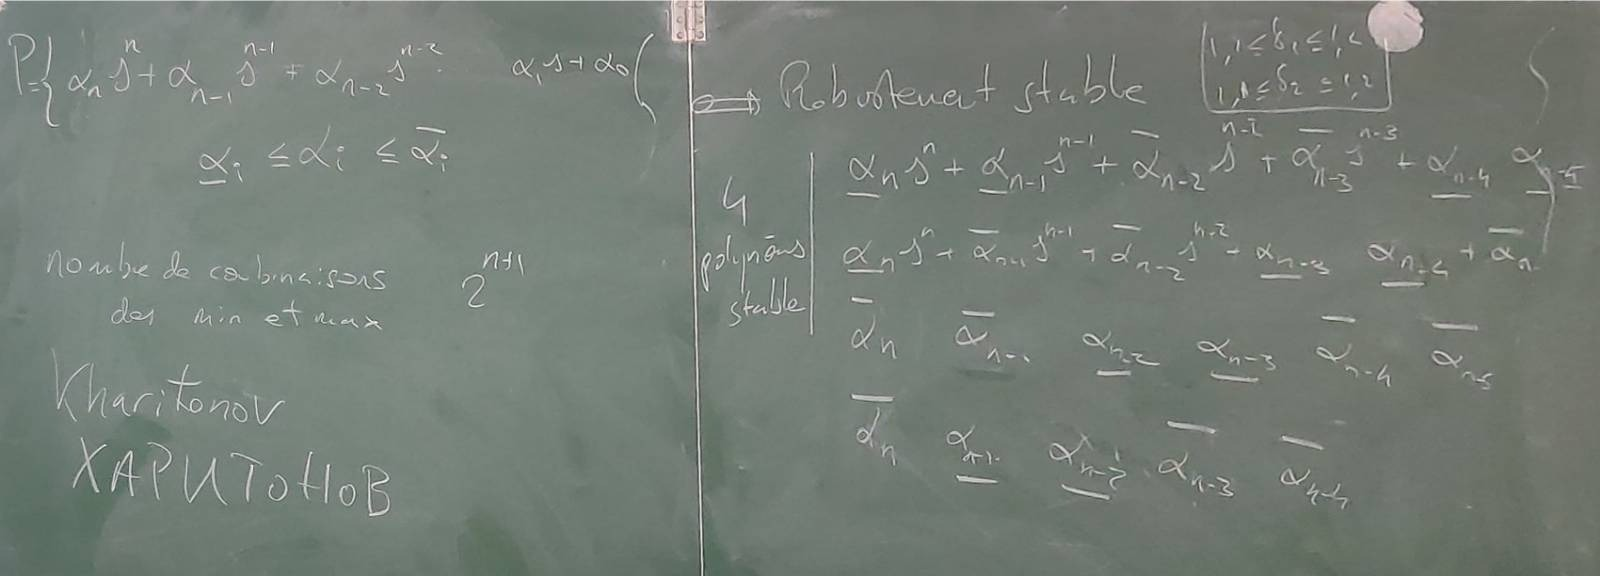 P={ αₙ sⁿ + αₙ₋₁ sⁿ⁻¹ + αₙ₋₂ sⁿ⁻² . α₁s + α₀ }
α̲ᵢ ≤ αᵢ ≤ ᾱᵢ
nombre de combinaisons 2ⁿ⁺¹
des min et max
Kharitonov
ХАРИТОНОВ
⟹ Robustement stable
1,1 ≤ δ₁ ≤ 1,2
1,1 ≤ δ₂ ≤ 1,2
4
polynôms
stable
α̲ₙ sⁿ + α̲ₙ₋₁ sⁿ⁻¹ + ᾱₙ₋₂ sⁿ⁻² + ᾱₙ₋₃ sⁿ⁻³ + α̲ₙ₋₄ α̲ₙ₋₅
α̲ₙ sⁿ + ᾱₙ₋₁ sⁿ⁻¹ + ᾱₙ₋₂ sⁿ⁻² + α̲ₙ₋₃ α̲ₙ₋₄ + ᾱₙ₋
ᾱₙ ᾱₙ₋₁ α̲ₙ₋₂ α̲ₙ₋₃ ᾱₙ₋₄ ᾱₙ₋₅
ᾱₙ α̲ₙ₋₁ α̲ₙ₋₂ ᾱₙ₋₃ ᾱₙ₋₄